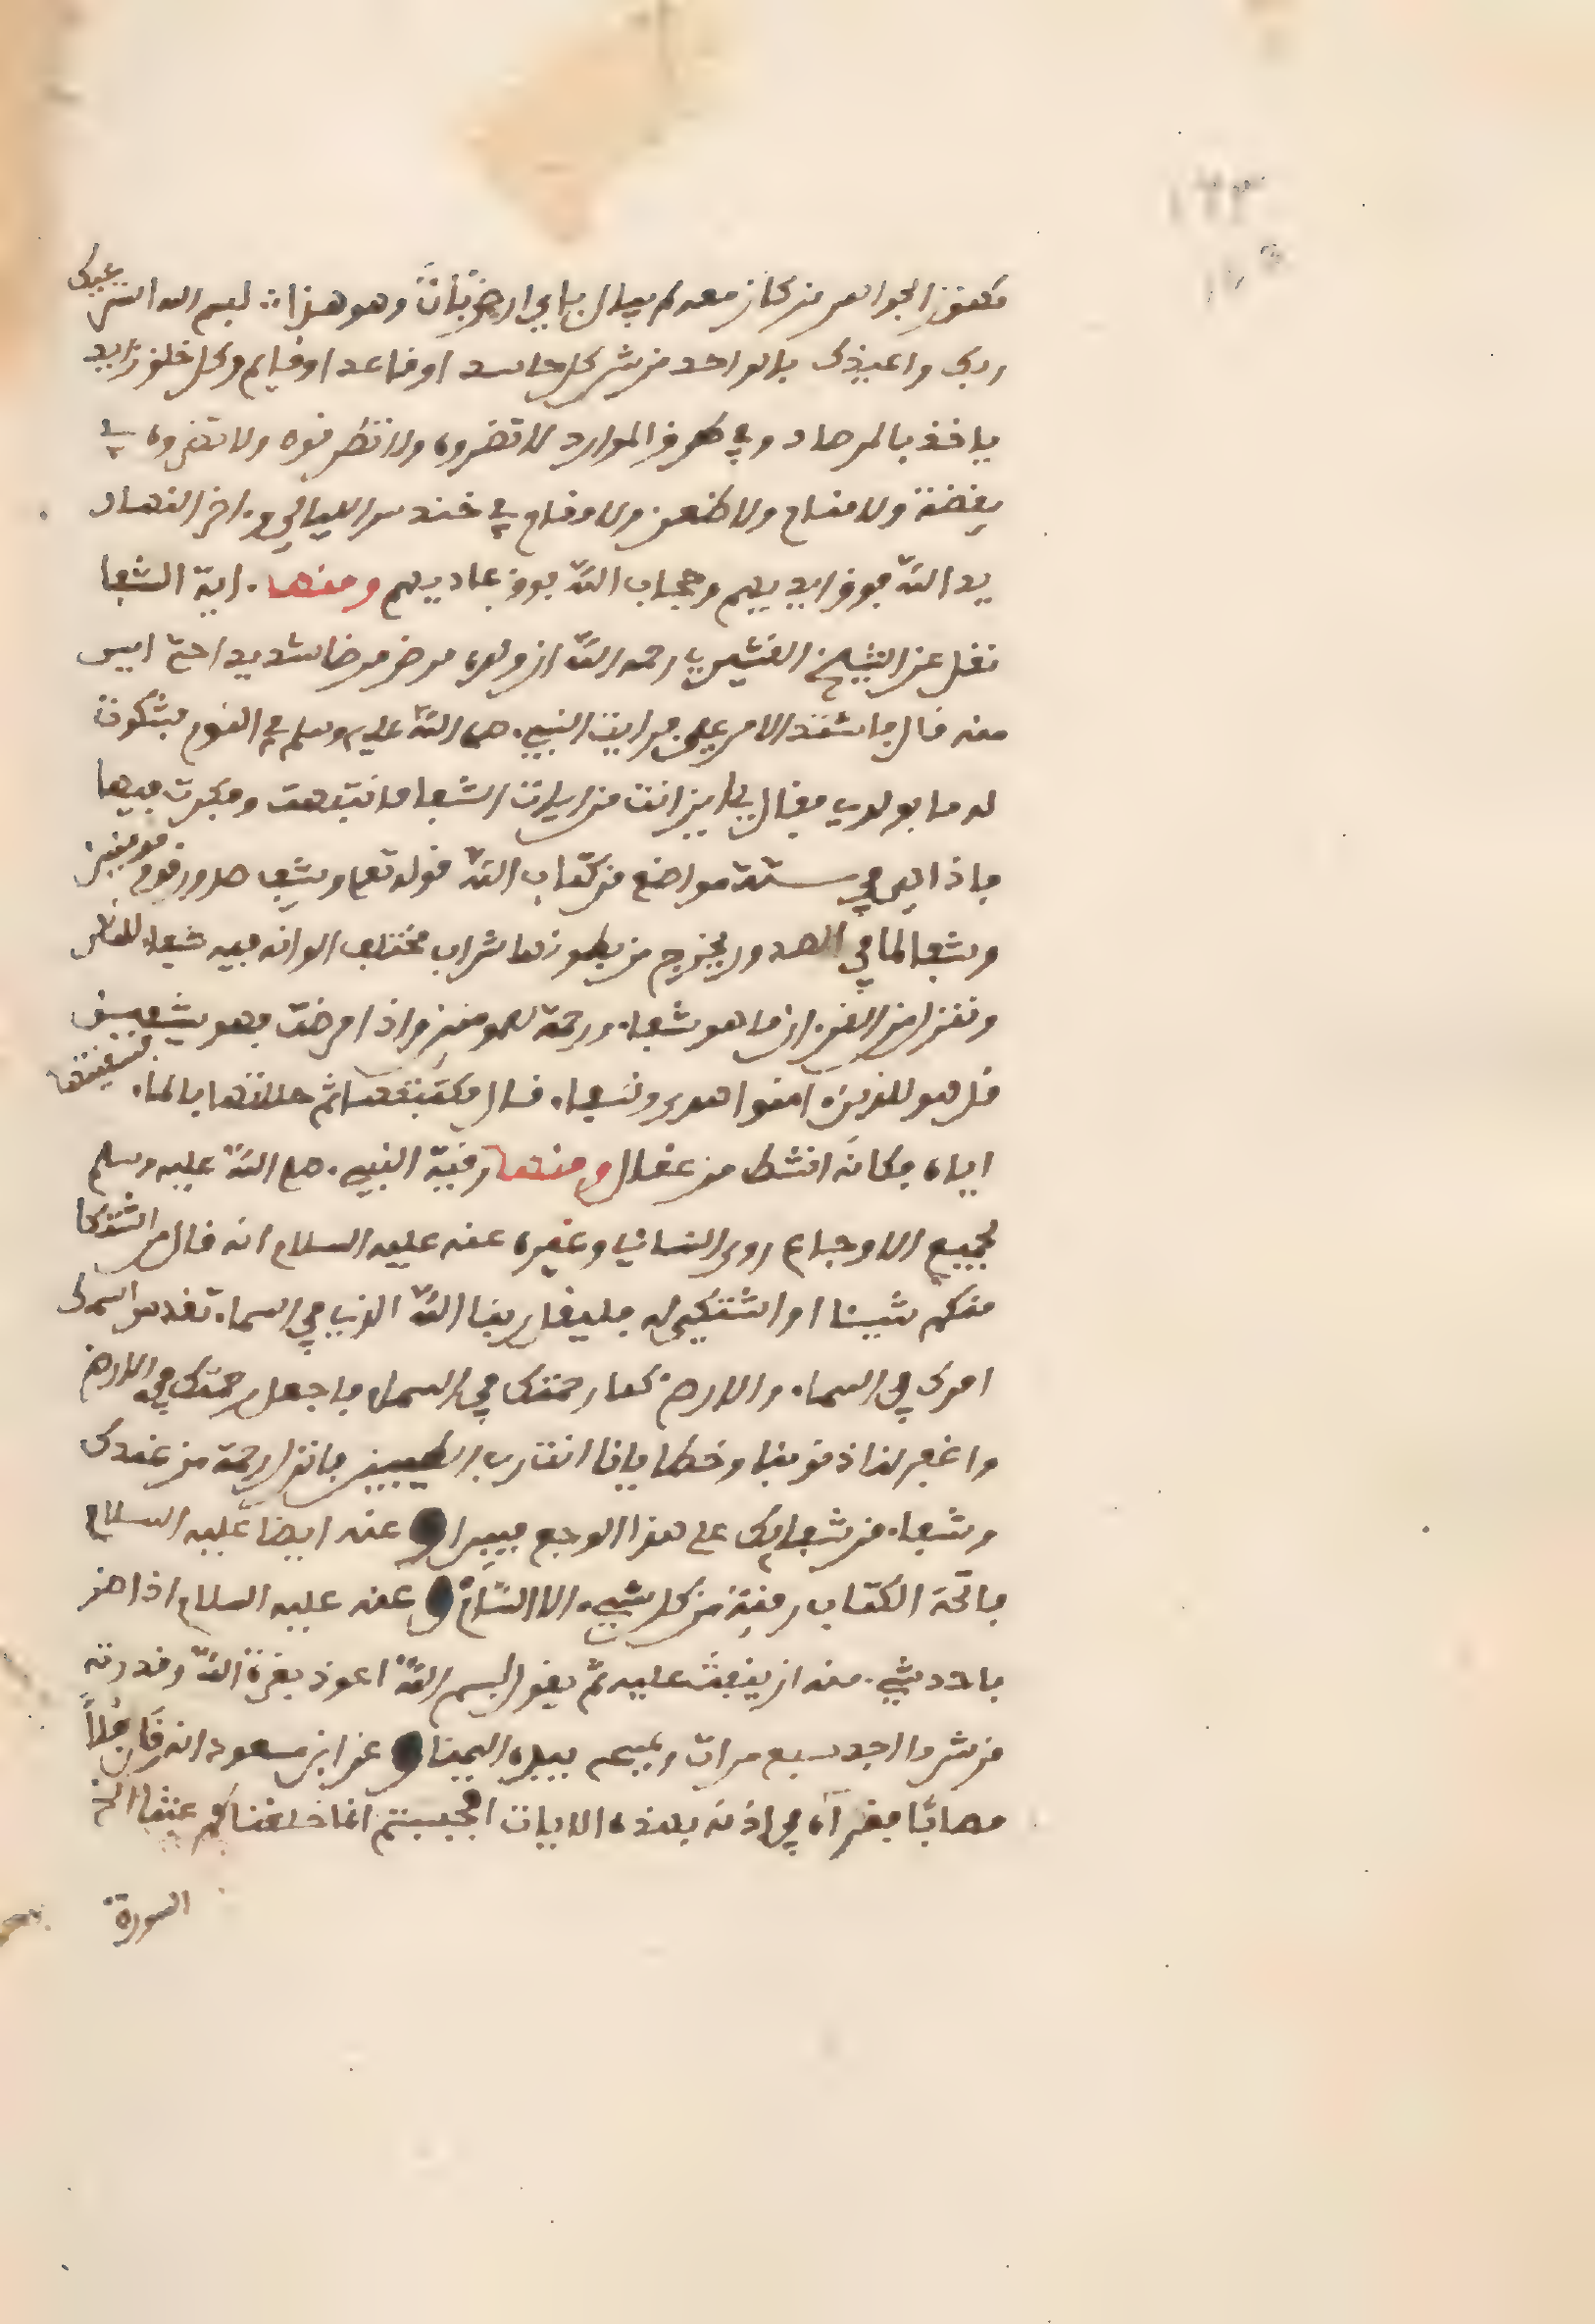 مكنون الجواهر من كان معه لم يبال باي ارض بات وهو هذا : بسم الله استرعيك
ربك واعيذك بالواحد من شر كل حاسد او قاعد او قايم وكل خلق زايد
ياخذ بالمرصاد وفي طرق الموارد لا تضروه ولا تطرقوه ولا تقزوه في
يقضة ولا منام ولا ظعن ولا مقام في خندس الليالي واخر النهار
يد الله فوق ايديهم وحجاب الله فوق عاديهم ومنها اية الشفا
نقل عن الشيخ القشيري رحمه الله ان ولده مرض مرضا شديدا حتى ايس
منه قال فاشتد الامر علي فرايت النبيء صلى الله عليه وسلم في النوم فشكوت
له ما بولدي فقال لي اين انت من ايات الشفا فانتبهت وفكرت فيها
فاذا هي في ستة مواضع من كتاب الله قوله تعلى ويشف صدور قوم مومنين
وشفا لما في الصدور يخرج من بطونها شراب مختلف الوانه فيه شفاء للناس
وننزل من القرءان ما هو شفاء ورحمة للمومنين واذا مرضت فهو يشفين
قل هو للذين ءامنوا هدى وشفاء قال فكتبتها ثم حللتها بالماء فسقيتها
اياه فكانه انشط من عقال ومنها رقية النبيء صلى الله عليه وسلم
لجميع الاوجاع روى النسائي وغيره عنه عليه السلام انه قال من اشتكا
منكم شيئا او اشتكى له فليقل ربنا الله الذي في السماء تقدس اسمك
امرك في السماء والارض كما رحمتك في السماء فاجعل رحمتك في الارض
واغفر لنا ذنوبنا وخطايانا انت رب الطيبين فانزل رحمة من عندك
وشفاء من شفائك على هذا الوجع فيبرا وعنه ايضا عليه السلام
فاتحة الكتاب رقية من كل شيء الا السام وعنه عليه السلام اذا ضر
باحد شيء منه ان ينفث عليه ثم يقول بسم الله اعوذ بعزة الله وقدرته
من شر ما اجد سبع مرات ويمسح بيده اليمنا وعن ابن مسعود انه رقا رجلاً
مصابًا بقرآءة في اذنه بهذه الايات افحسبتم انما خلقناكم عبثا الخ
السورة